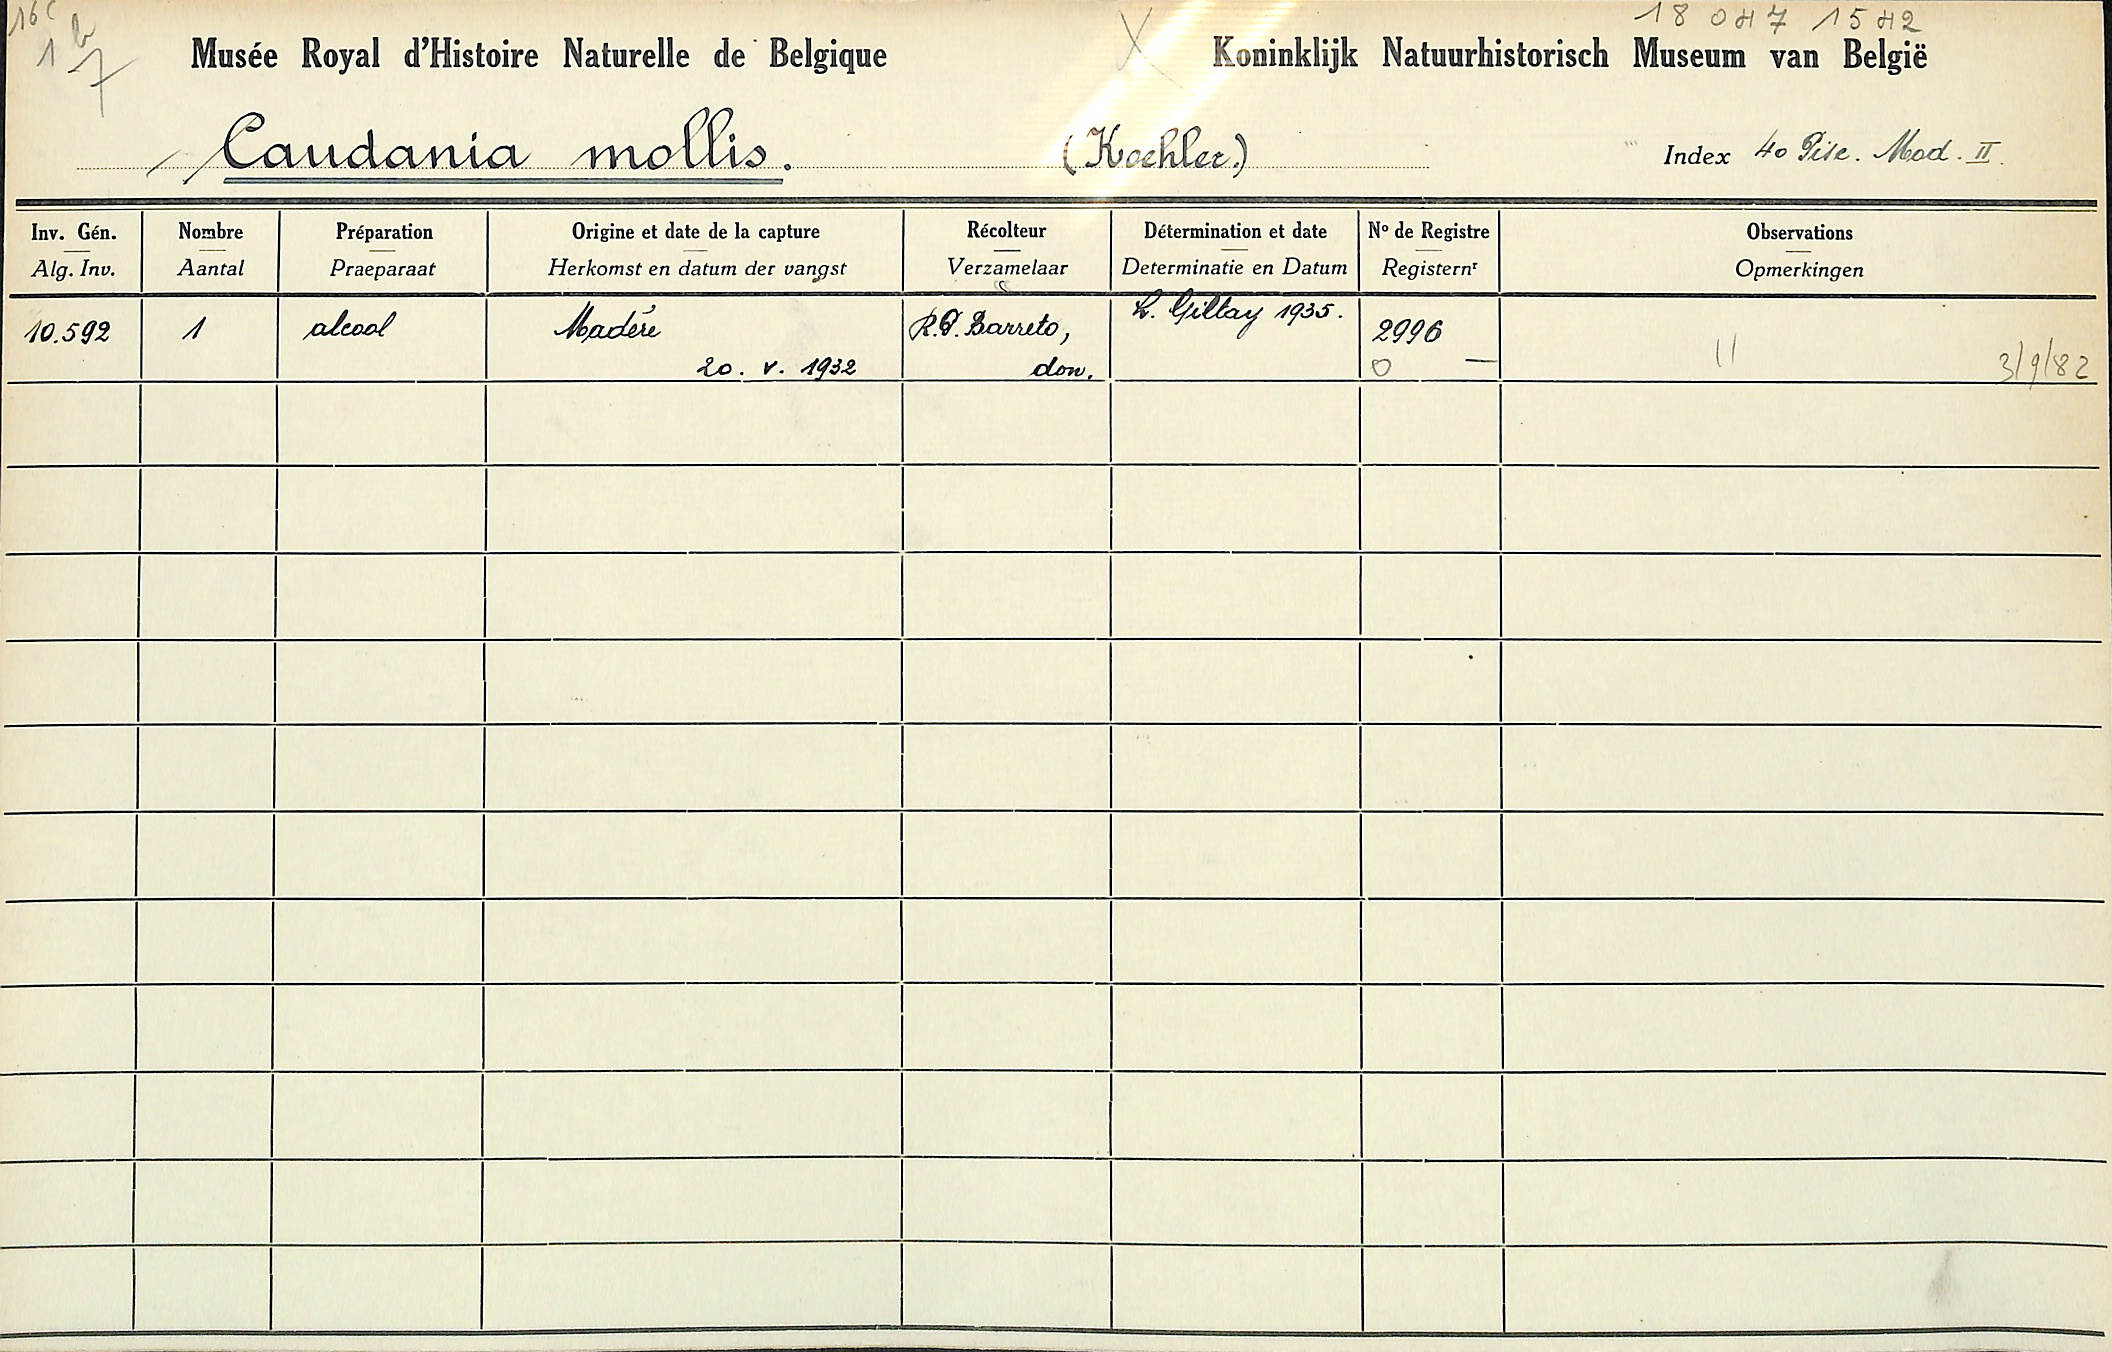 16c 18 047 1542
1 b
7
Musée Royal d'Histoire Naturelle de Belgique X Koninklijk Natuurhistorisch Museum van België
Caudania mollis. (Koehler.) Index 40 Pisc. Mad. II.
Inv. Gén. Nombre Préparation Origine et date de la capture Récolteur Détermination et date Nº de Registre Observations
Alg. Inv. Aantal Praeparaat Herkomst en datum der vangst Verzamelaar Determinatie en Datum Registernr Opmerkingen
10.592 1 alcool Madère R.G. Barreto, L. Giltay 1935. 2996
20. v. 1932 don. 0 — 3/9/82